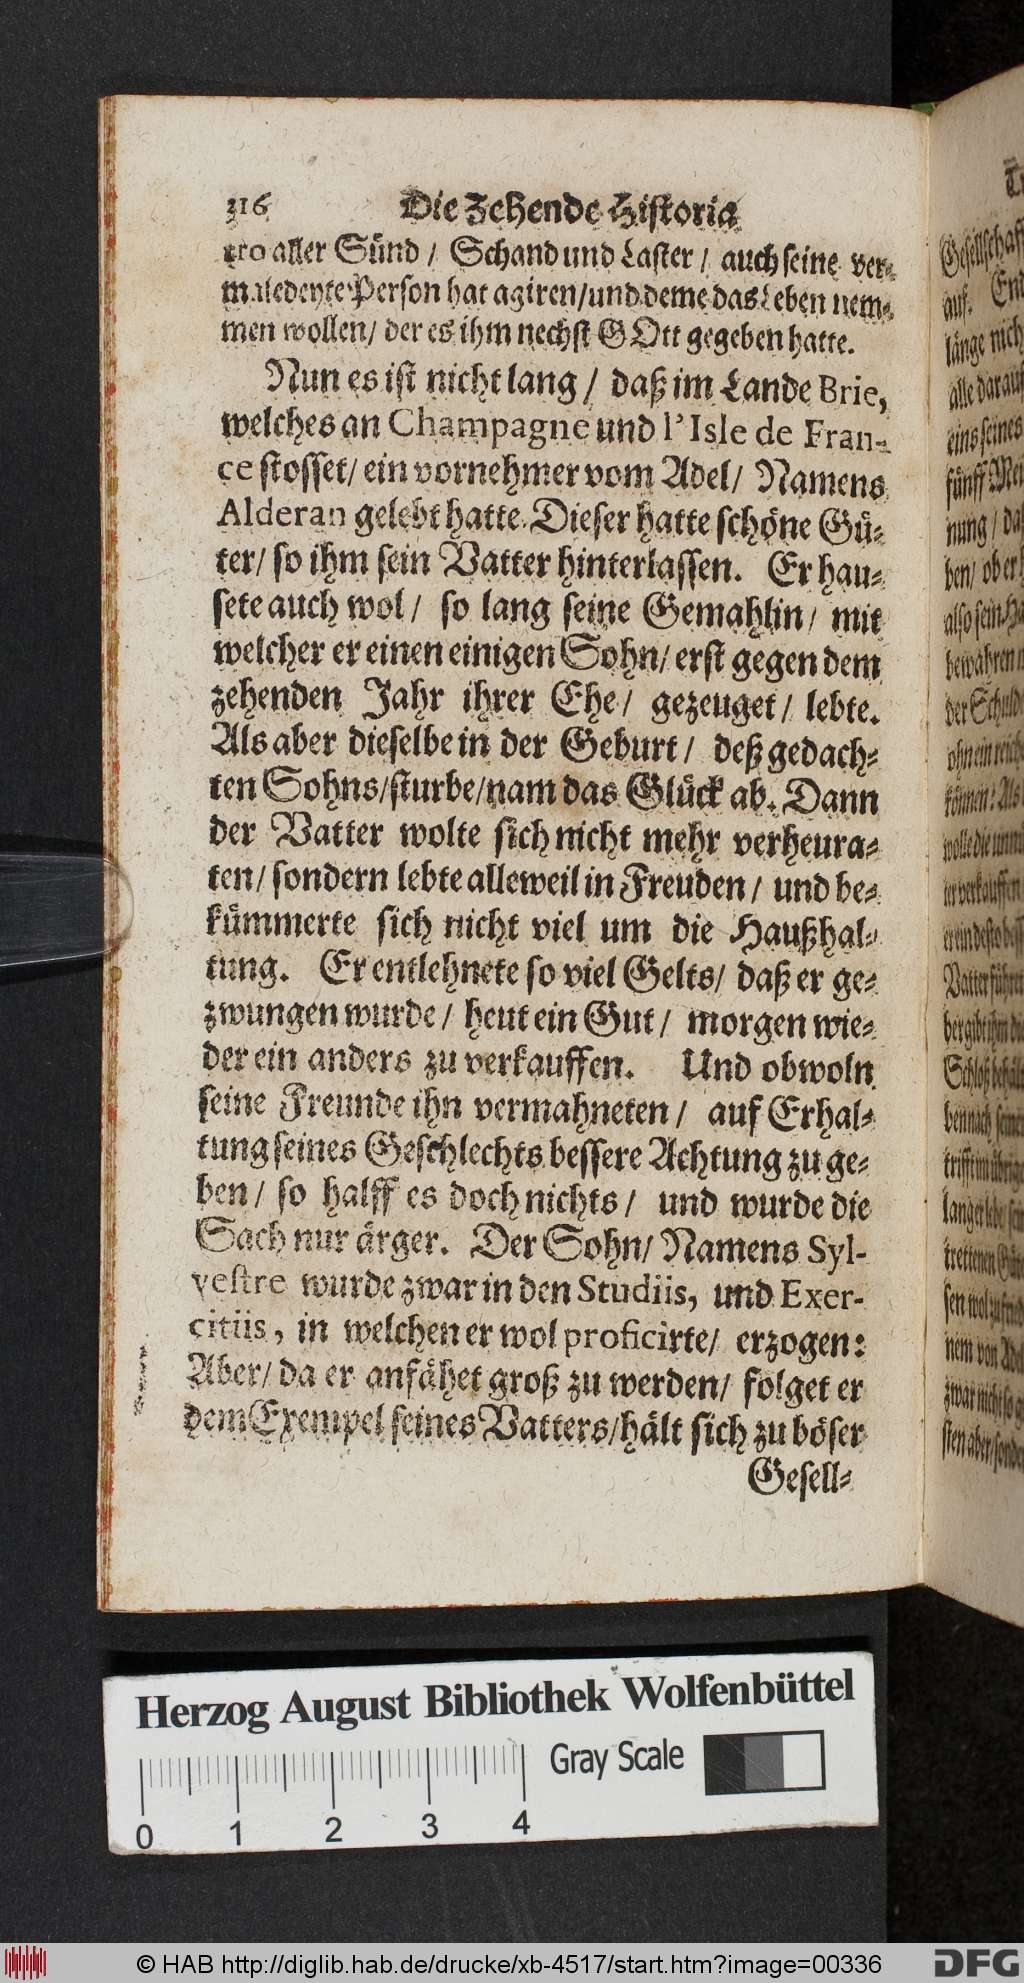 316 Die Zehende Historia
tro aller Sünd / Schand und Laster / auch seine ver-
maledeyte Person hat agiren/und deme das Leben nem-
men wollen/ der es ihm nechst GOtt gegeben hatte.
Nun es ist nicht lang / daß im Lande Brie,
welches an Champagne und l'Isle de Fran-
ce stosset/ ein vornehmer vom Adel/ Namens
Alderan gelebt hatte. Dieser hatte schöne Gü-
ter/ so ihm sein Vatter hinterlassen. Er hau-
sete auch wol / so lang seine Gemahlin / mit
welcher er einen einigen Sohn/ erst gegen dem
zehenden Jahr ihrer Ehe / gezeuget / lebte.
Als aber dieselbe in der Geburt / deß gedach-
ten Sohns/sturbe/nam das Glück ab. Dann
der Vatter wolte sich nicht mehr verheura-
ten/ sondern lebte alleweil in Freuden / und be-
kümmerte sich nicht viel um die Haußhal-
tung. Er entlehnete so viel Gelts/ daß er ge-
zwungen wurde / heut ein Gut / morgen wie-
der ein anders zu verkauffen. Und obwoln
seine Freunde ihn vermahneten / auf Erhal-
tung seines Geschlechts bessere Achtung zu ge-
ben / so halff es doch nichts / und wurde die
Sach nur ärger. Der Sohn/ Namens Syl-
vestre wurde zwar in den Studiis, und Exer-
citiis, in welchen er wol proficirte/ erzogen:
Aber/ da er anfähet groß zu werden/ folget er
dem Exempel seines Vatters/hält sich zu böser
Gesell-
Gesellschaft
auf. 
länge nich
alle darauf
eins seines
fünff
nung / da
ben/ ob er
also sein
bewähren
der Schuld
ohn ein reich
können: Als
wolle die
verkauffen
Vatter führe
langer lebe
nem von Adel
zwar nicht so
sten aber/ sonde
Herzog August Bibliothek Wolfenbüttel
Gray Scale
0 1 2 3 4
© HAB http://diglib.hab.de/drucke/xb-4517/start.htm?image=00336
DFG